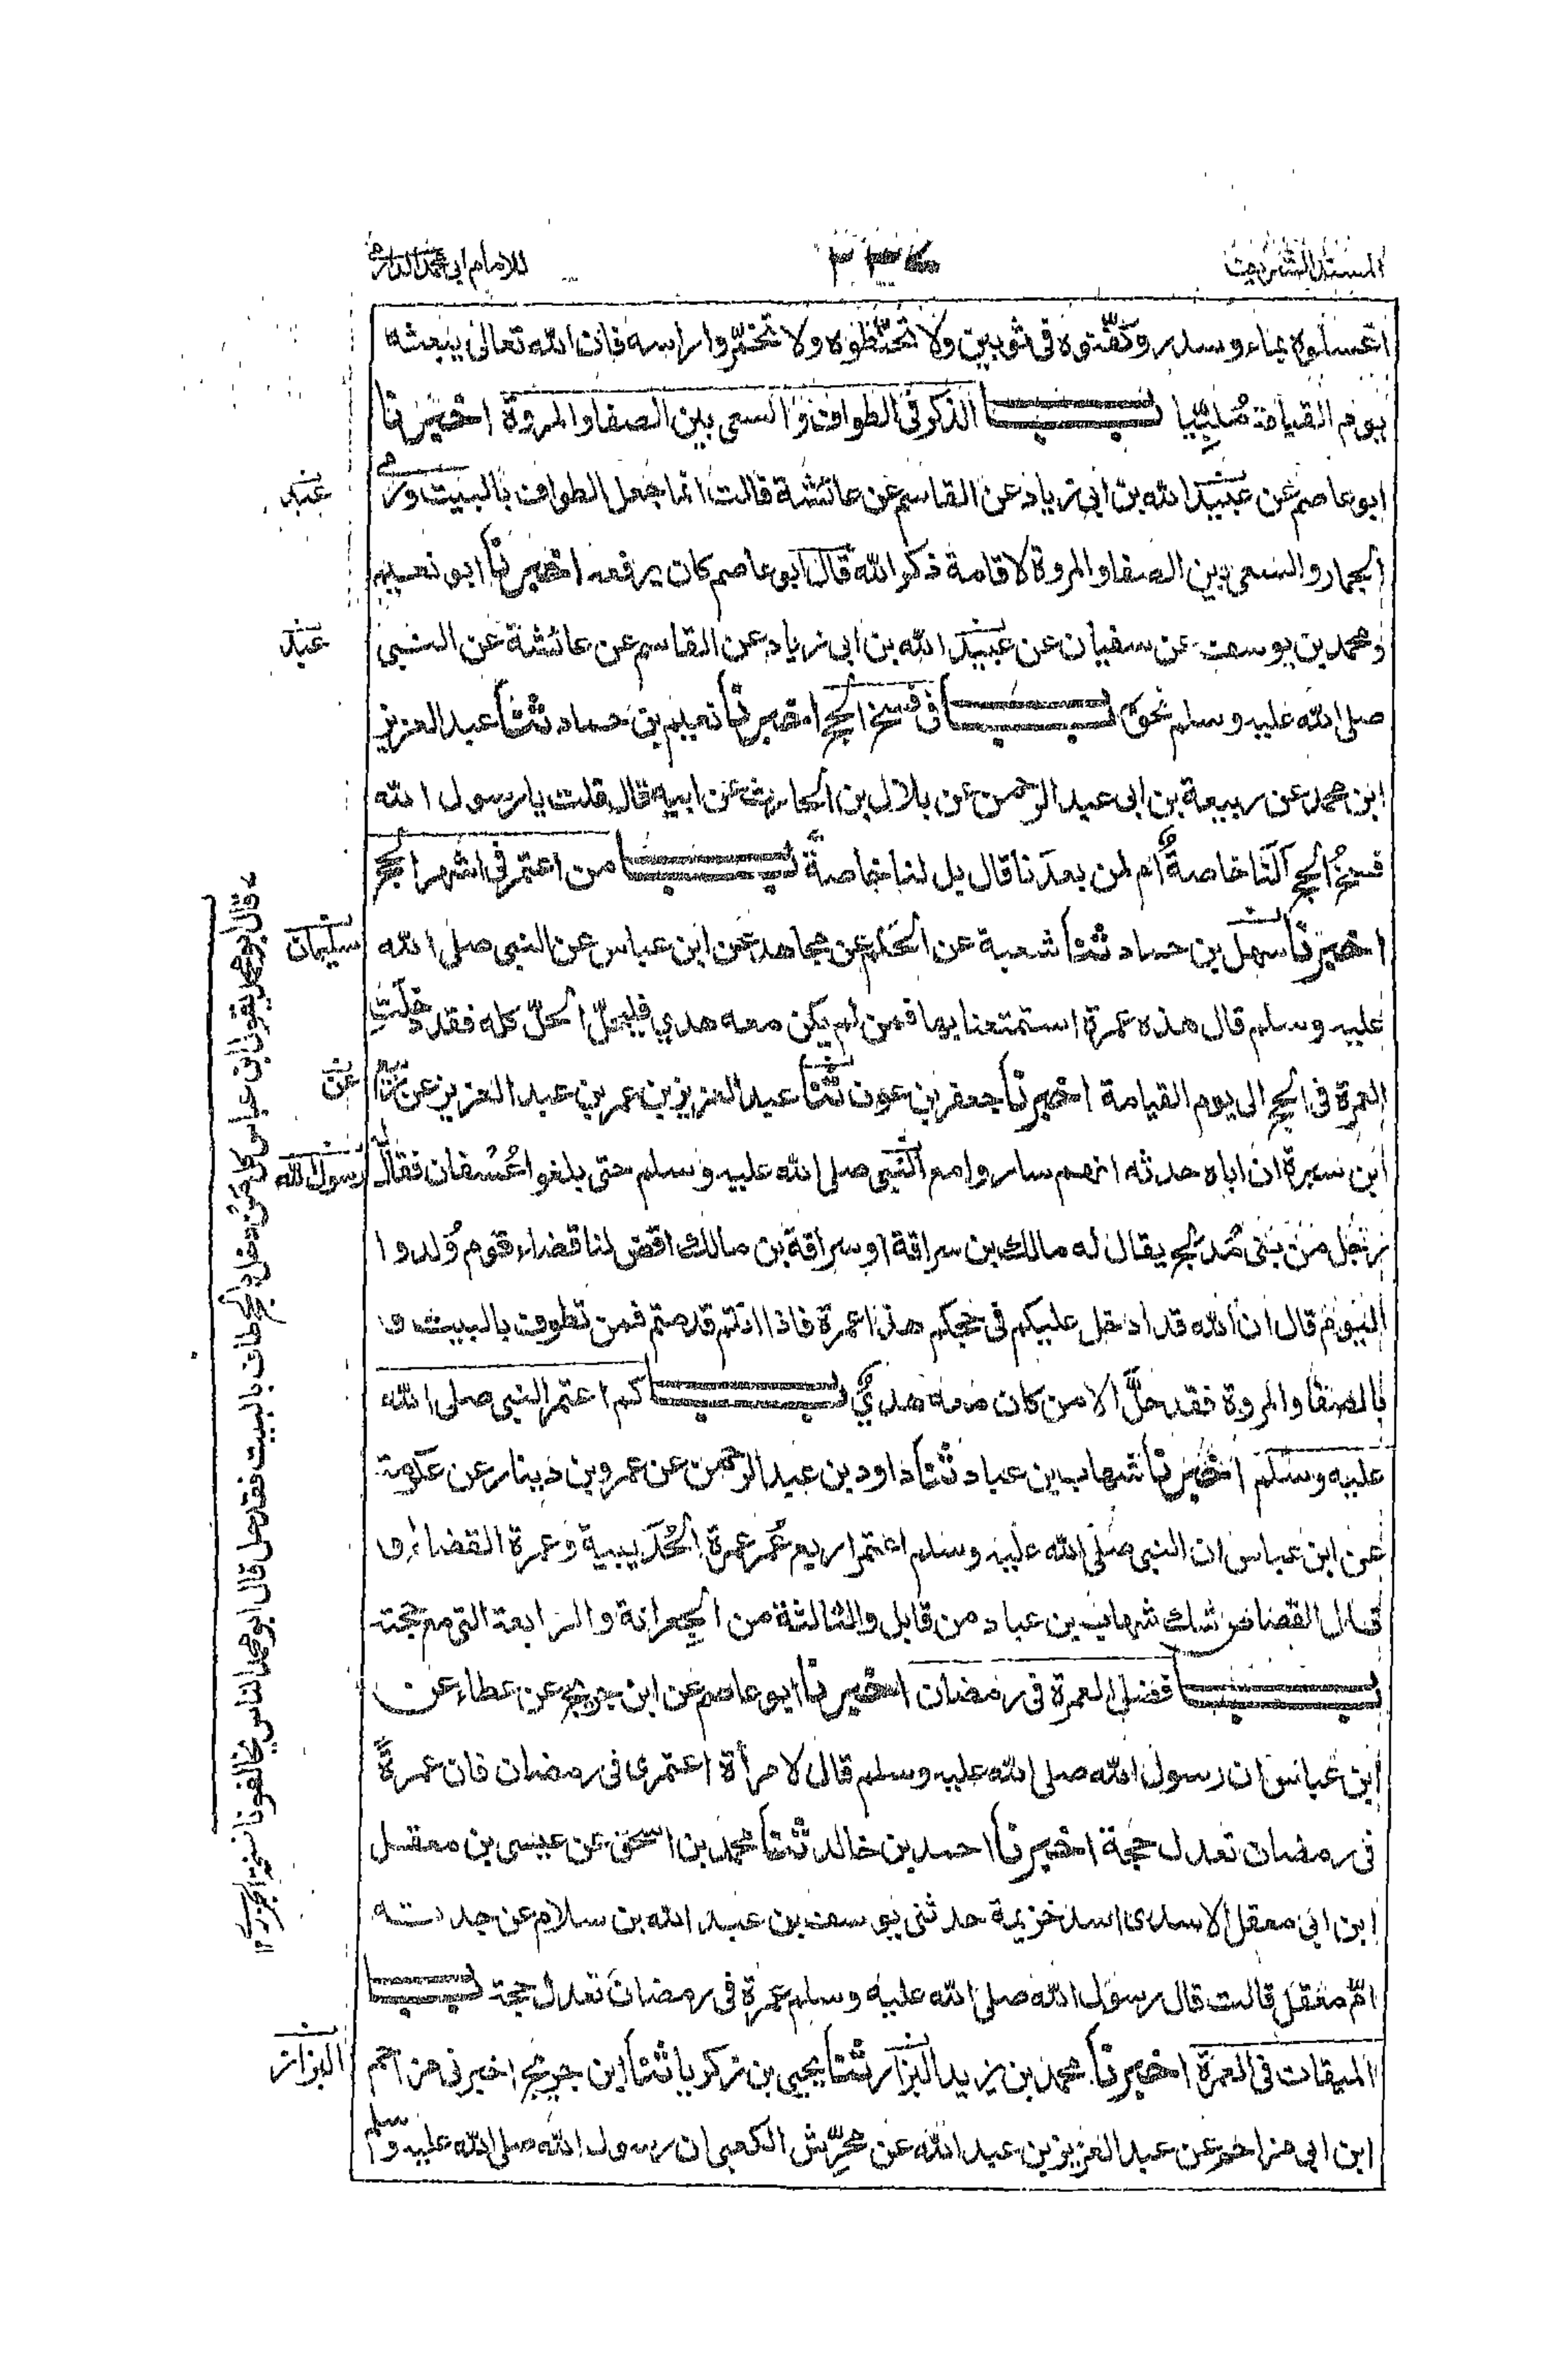 المسند الشريف
للامام ابي محمد الدارمي
اغسلوه بماء وسدر وكفنوه في ثوبين ولا تحنطوه ولا تخمروا راسه فان الله تعالى يبعثه
يوم القيامة مُلَبِّيا باب الذكر في الطواف والسعي بين الصفا والمروة اخبرنا
ابو عاصم عن عبيد الله بن ابي زياد عن القاسم عن عائشة قالت انما جعل الطواف بالبيت ورمي
الجمار والسعي بين الصفا والمروة لاقامة ذكر الله قال ابو عاصم كان يرفعه اخبرنا ابو نعيم
ومحمد بن يوسف عن سفيان عن عبيد الله بن ابي زياد عن القاسم عن عائشة عن النبي
صلى الله عليه وسلم نحوه باب في فسخ الحج اخبرنا نعيم بن حماد ثنا عبد العزيز
ابن محمد عن ربيعة بن ابي عبد الرحمن عن بلال بن الحارث عن ابيه قال قلت يا رسول الله
فسخُ الحج اَلَنا خاصةً اَم لمن بعدنا قال بل لنا خاصةً باب من اعتمر في اشهر الحج
اخبرنا سهل بن حماد ثنا شعبة عن الحكم عن مجاهد عن ابن عباس عن النبي صلى الله
عليه وسلم قال هذه عمرة استمتعنا بها فمن لم يكن معه هدي فليحلّ الحلّ كله فقد دخلت
العمرة في الحج الى يوم القيامة اخبرنا جعفر بن عون ثنا عبد العزيز بن عمر بن عبد العزيز عن
ابن سبرة ان اباه حدثه انهم ساروا مع النبي صلى الله عليه وسلم حتى بلغوا عُسْفان فقال له
رجل من بني مُدلج يقال له مالك بن سراقة او سراقة بن مالك اقض لنا قضاء قوم وُلدوا
اليوم قال ان الله قد ادخل عليكم في حجكم هذا عمرة فاذا انتم قدمتم فمن تطوف بالبيت و
بالصفا والمروة فقد حلَّ الا من كان معه هديٌ باب كم اعتمر النبي صلى الله
عليه وسلم اخبرنا شهاب بن عباد ثنا داود بن عبد الرحمن عن عمرو بن دينار عن عكرمة
عن ابن عباس ان النبي صلى الله عليه وسلم اعتمر اربع عُمَر عمرة الحُدَيبية وعمرة القضاء او
قال القضا ض شك شهاب بن عباد من قابل والثالثة من الجِعرانة والرابعة التي مع حجته
باب فضل العمرة في رمضان اخبرنا ابو عاصم عن ابن جريج عن عطاء عن
ابن عباس ان رسول الله صلى الله عليه وسلم قال لامرأة اعتمري في رمضان فان عمرةً
في رمضان تعدل حجة اخبرنا احمد بن خالد ثنا محمد بن اسحق عن عيسى بن معقل
ابن ابي معقل الاسدي اسد خزيمة حدثني يوسف بن عبد الله بن سلام عن جدته
امّ معقل قالت قال رسول الله صلى الله عليه وسلم عمرة في رمضان تعدل حجة باب
الميقات في العمرة اخبرنا محمد بن يزيد البزار ثنا يحيى بن زكريا ثنا ابن جريج اخبرني مزاحم
ابن ابي مزاحم عن عبد العزيز بن عبد الله عن محرِّش الكعبي ان رسول الله صلى الله عليه وسلم
عبد
عبد
سليمان
عن
رسول الله
البزاز
قال ابو محمد يقول ابن عباس كان من دخل بالحج طاف بالبيت فقد حل قال ابو محمد الناس يخالفونا نسخة